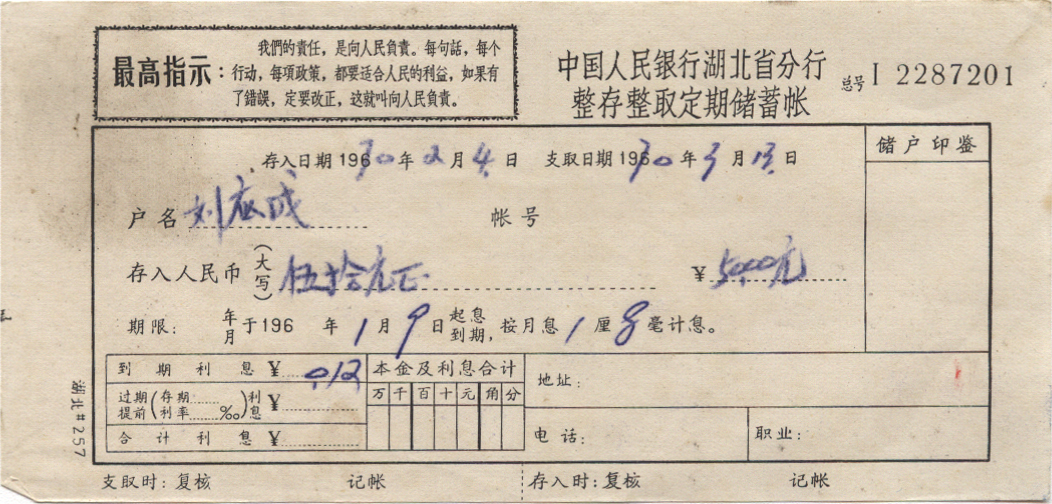 最高指示:
我們的責任，是向人民負責。每句話，每个
行动，每項政策，都要适合人民的利益，如果有
了錯誤，定要改正，这就叫向人民負責。
中国人民银行湖北省分行
整存整取定期储蓄帐
总号 I 2287201
存入日期 196 70 年 2 月 4 日 支取日期 196 70 年 3 月 13 日
储户印鉴
户名 刘应成 帐号
存入人民币（大写）伍拾元正 ¥ 50.00元
期限: 年月 于196 年 1 月 9 日 起息到期, 按月息 1 厘 8 毫计息。
到期利息 ¥ 0.12
过期提前（存期 利率 ‰）利息 ¥
合计利息 ¥
本金及利息合计
万 千 百 十 元 角 分
地址:
电话:
职业:
湖北#257
支取时: 复核 记帐 存入时: 复核 记帐